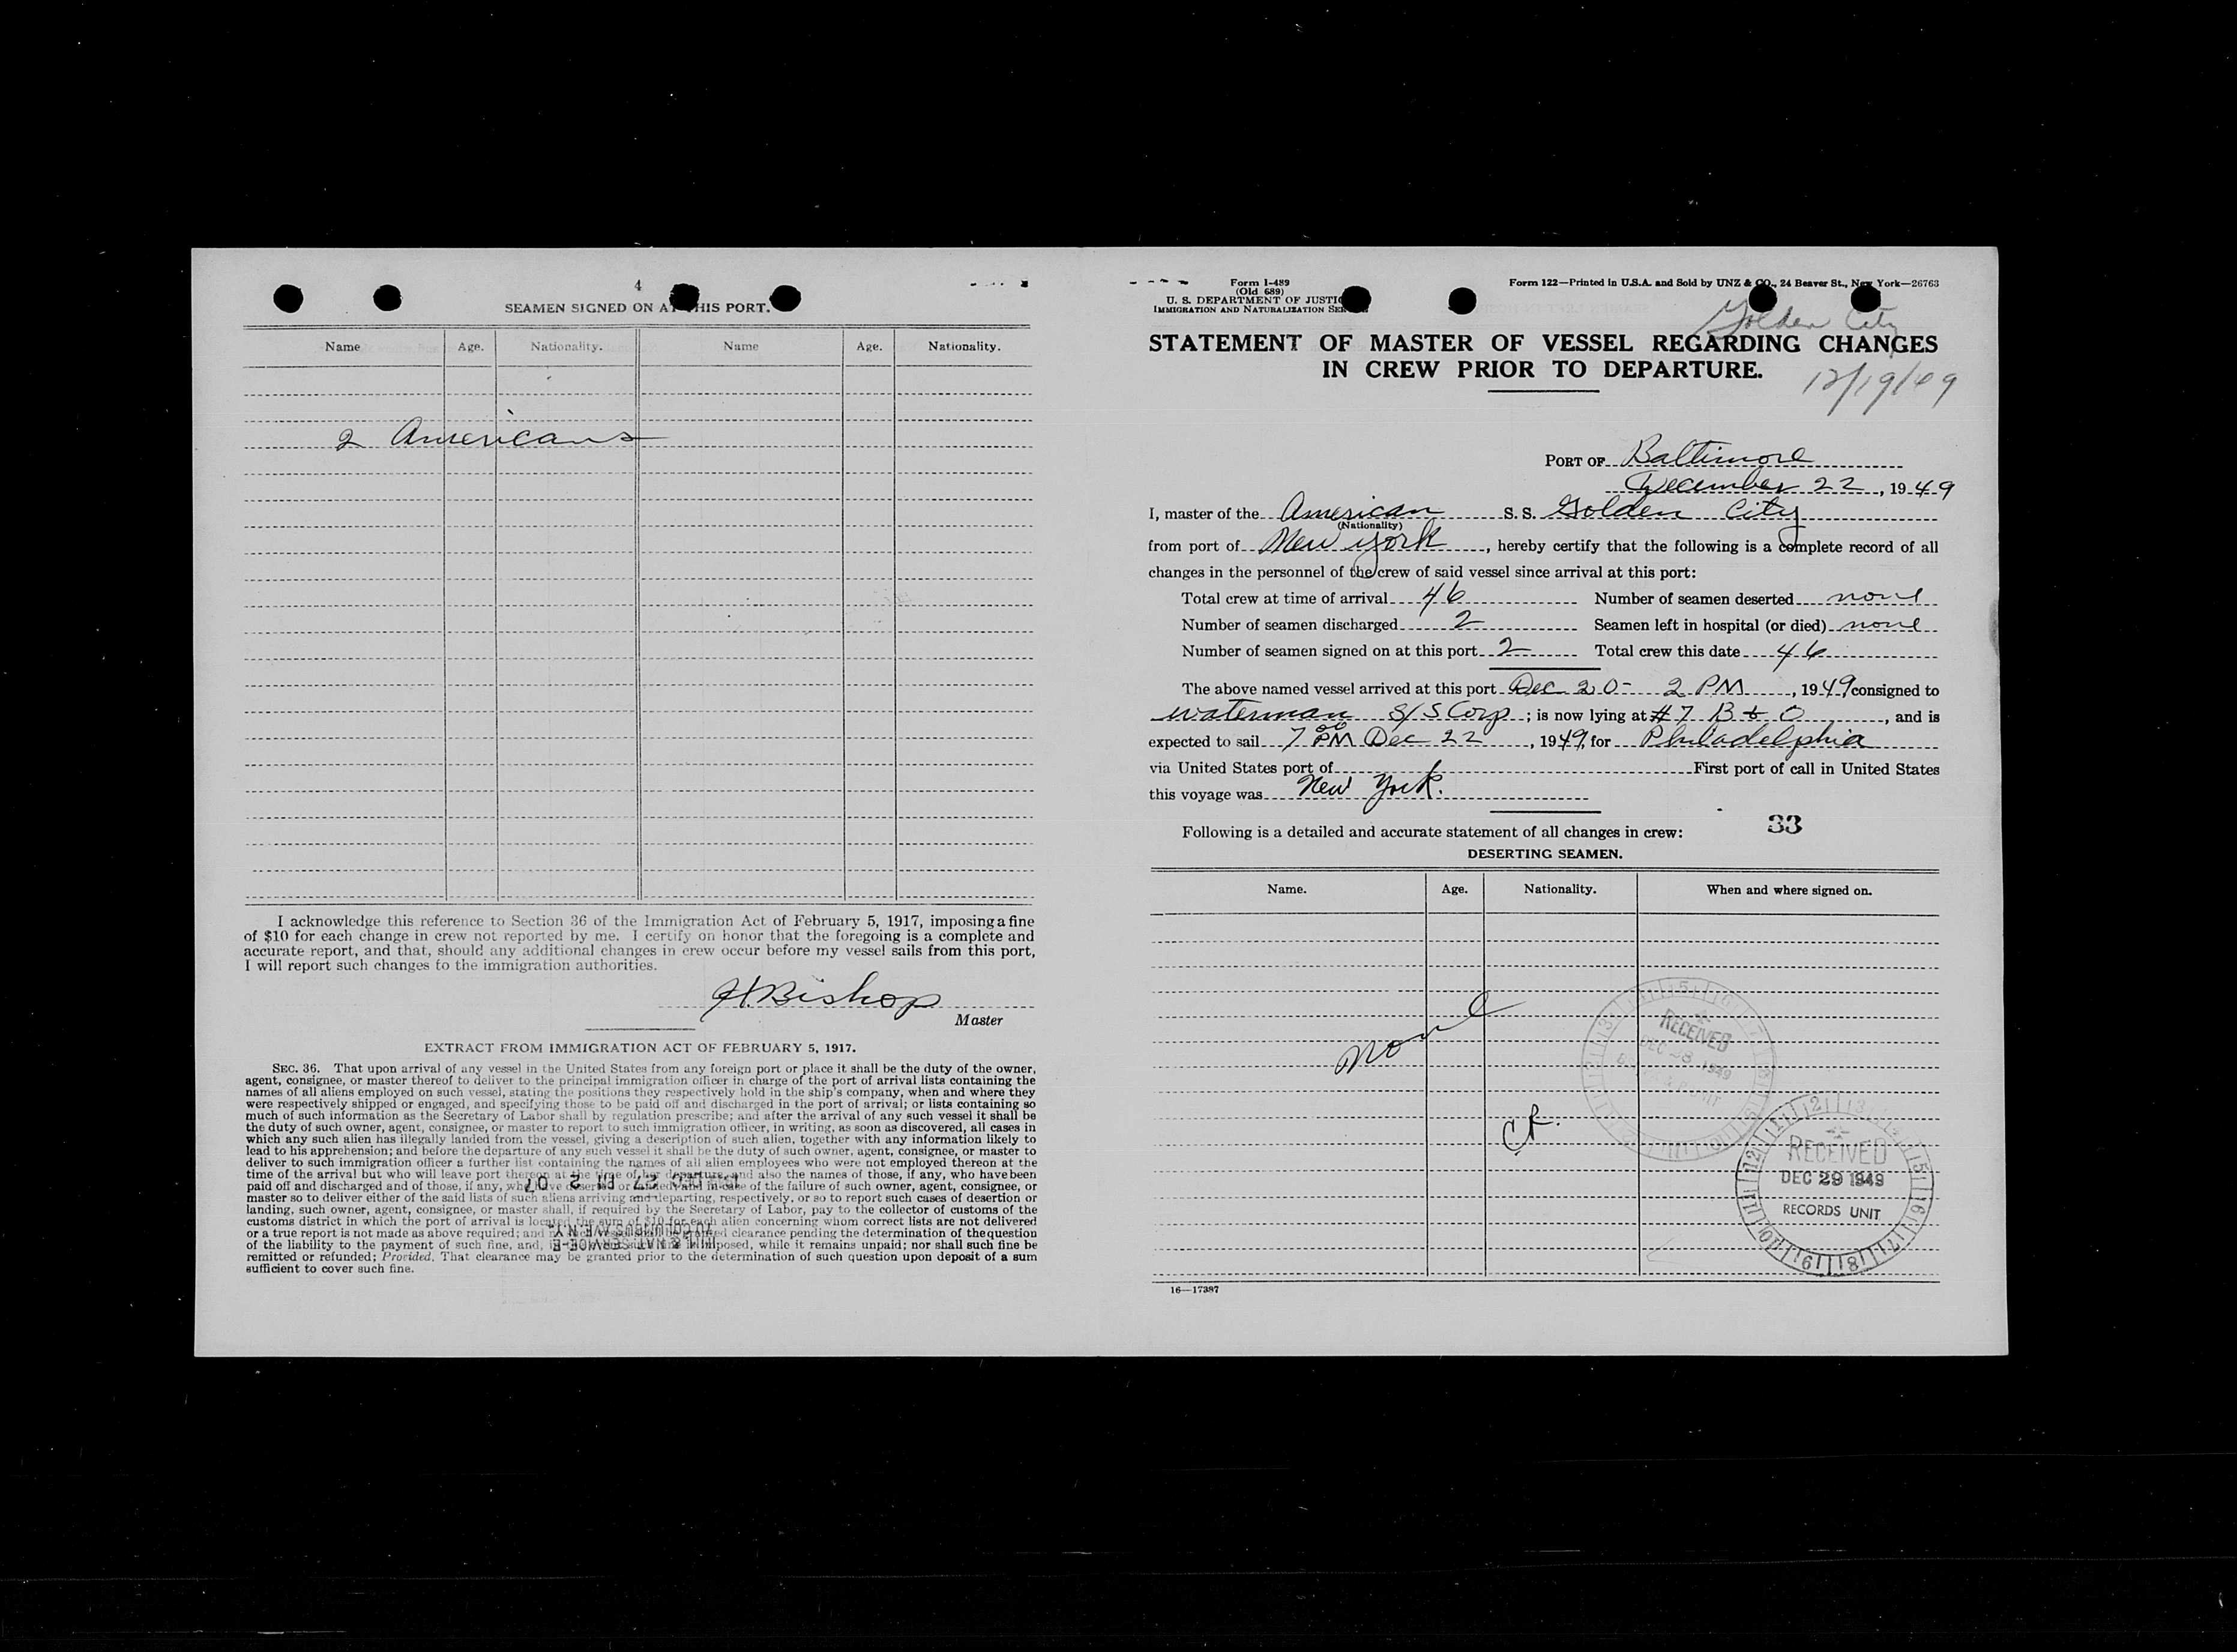 4
SEAMEN SIGNED ON AT THIS PORT.
Name Age. Nationality. Name Age. Nationality.
2 Americans
I acknowledge this reference to Section 36 of the Immigration Act of February 5, 1917, imposing a fine
of $10 for each change in crew not reported by me. I certify on honor that the foregoing is a complete and
accurate report, and that, should any additional changes in crew occur before my vessel sails from this port,
I will report such changes to the immigration authorities.
H. Bishop
Master
EXTRACT FROM IMMIGRATION ACT OF FEBRUARY 5, 1917.
SEC. 36. That upon arrival of any vessel in the United States from any foreign port or place it shall be the duty of the owner,
agent, consignee, or master thereof to deliver to the principal immigration officer in charge of the port of arrival lists containing the
names of all aliens employed on such vessel, stating the positions they respectively hold in the ship's company, when and where they
were respectively shipped or engaged, and specifying those to be paid off and discharged in the port of arrival; or lists containing so
much of such information as the Secretary of Labor shall by regulation prescribe; and after the arrival of any such vessel it shall be
the duty of such owner, agent, consignee, or master to report to such immigration officer, in writing, as soon as discovered, all cases in
which any such alien has illegally landed from the vessel, giving a description of such alien, together with any information likely to
lead to his apprehension; and before the departure of any such vessel it shall be the duty of such owner, agent, consignee, or master to
deliver to such immigration officer a further list containing the names of all alien employees who were not employed thereon at the
time of the arrival but who will leave port thereon at the time of her departure, and also the names of those, if any, who have been
paid off and discharged and of those, if any, who have deserted or landed; and in case of the failure of such owner, agent, consignee, or
master so to deliver either of the said lists of such aliens arriving and departing, respectively, or so to report such cases of desertion or
landing, such owner, agent, consignee, or master shall, if required by the Secretary of Labor, pay to the collector of customs of the
customs district in which the port of arrival is located the sum of $10 for each alien concerning whom correct lists are not delivered
or a true report is not made as above required; and clearance pending the determination of the question
of the liability to the payment of such fine, and, imposed, while it remains unpaid; nor shall such fine be
remitted or refunded; Provided, That clearance may be granted prior to the determination of such question upon deposit of a sum
sufficient to cover such fine.
Form I-489
(Old 689)
U. S. DEPARTMENT OF JUSTIC
IMMIGRATION AND NATURALIZATION SER
Form 122—Printed in U.S.A. and Sold by UNZ & CO., 24 Beaver St., New York—26763
Golden City
STATEMENT OF MASTER OF VESSEL REGARDING CHANGES
IN CREW PRIOR TO DEPARTURE.
12/19/49
PORT OF Baltimore
December 22, 1949
I, master of the American S. S. Golden City
(Nationality)
from port of New York, hereby certify that the following is a complete record of all
changes in the personnel of the crew of said vessel since arrival at this port:
Total crew at time of arrival 46 Number of seamen deserted none
Number of seamen discharged 2 Seamen left in hospital (or died) none
Number of seamen signed on at this port 2 Total crew this date 46
The above named vessel arrived at this port Dec 20- 2 PM, 1949 consigned to
Waterman S/S Corp; is now lying at #7 B & O, and is
expected to sail 7 00 PM Dec 22, 1949, for Philadelphia
via United States port of First port of call in United States
this voyage was New York.
33
Following is a detailed and accurate statement of all changes in crew:
DESERTING SEAMEN.
Name. Age. Nationality. When and where signed on.
None
RECEIVED
DEC 28 1949
CR.
RECEIVED
DEC 29 1949
RECORDS UNIT
16—17387